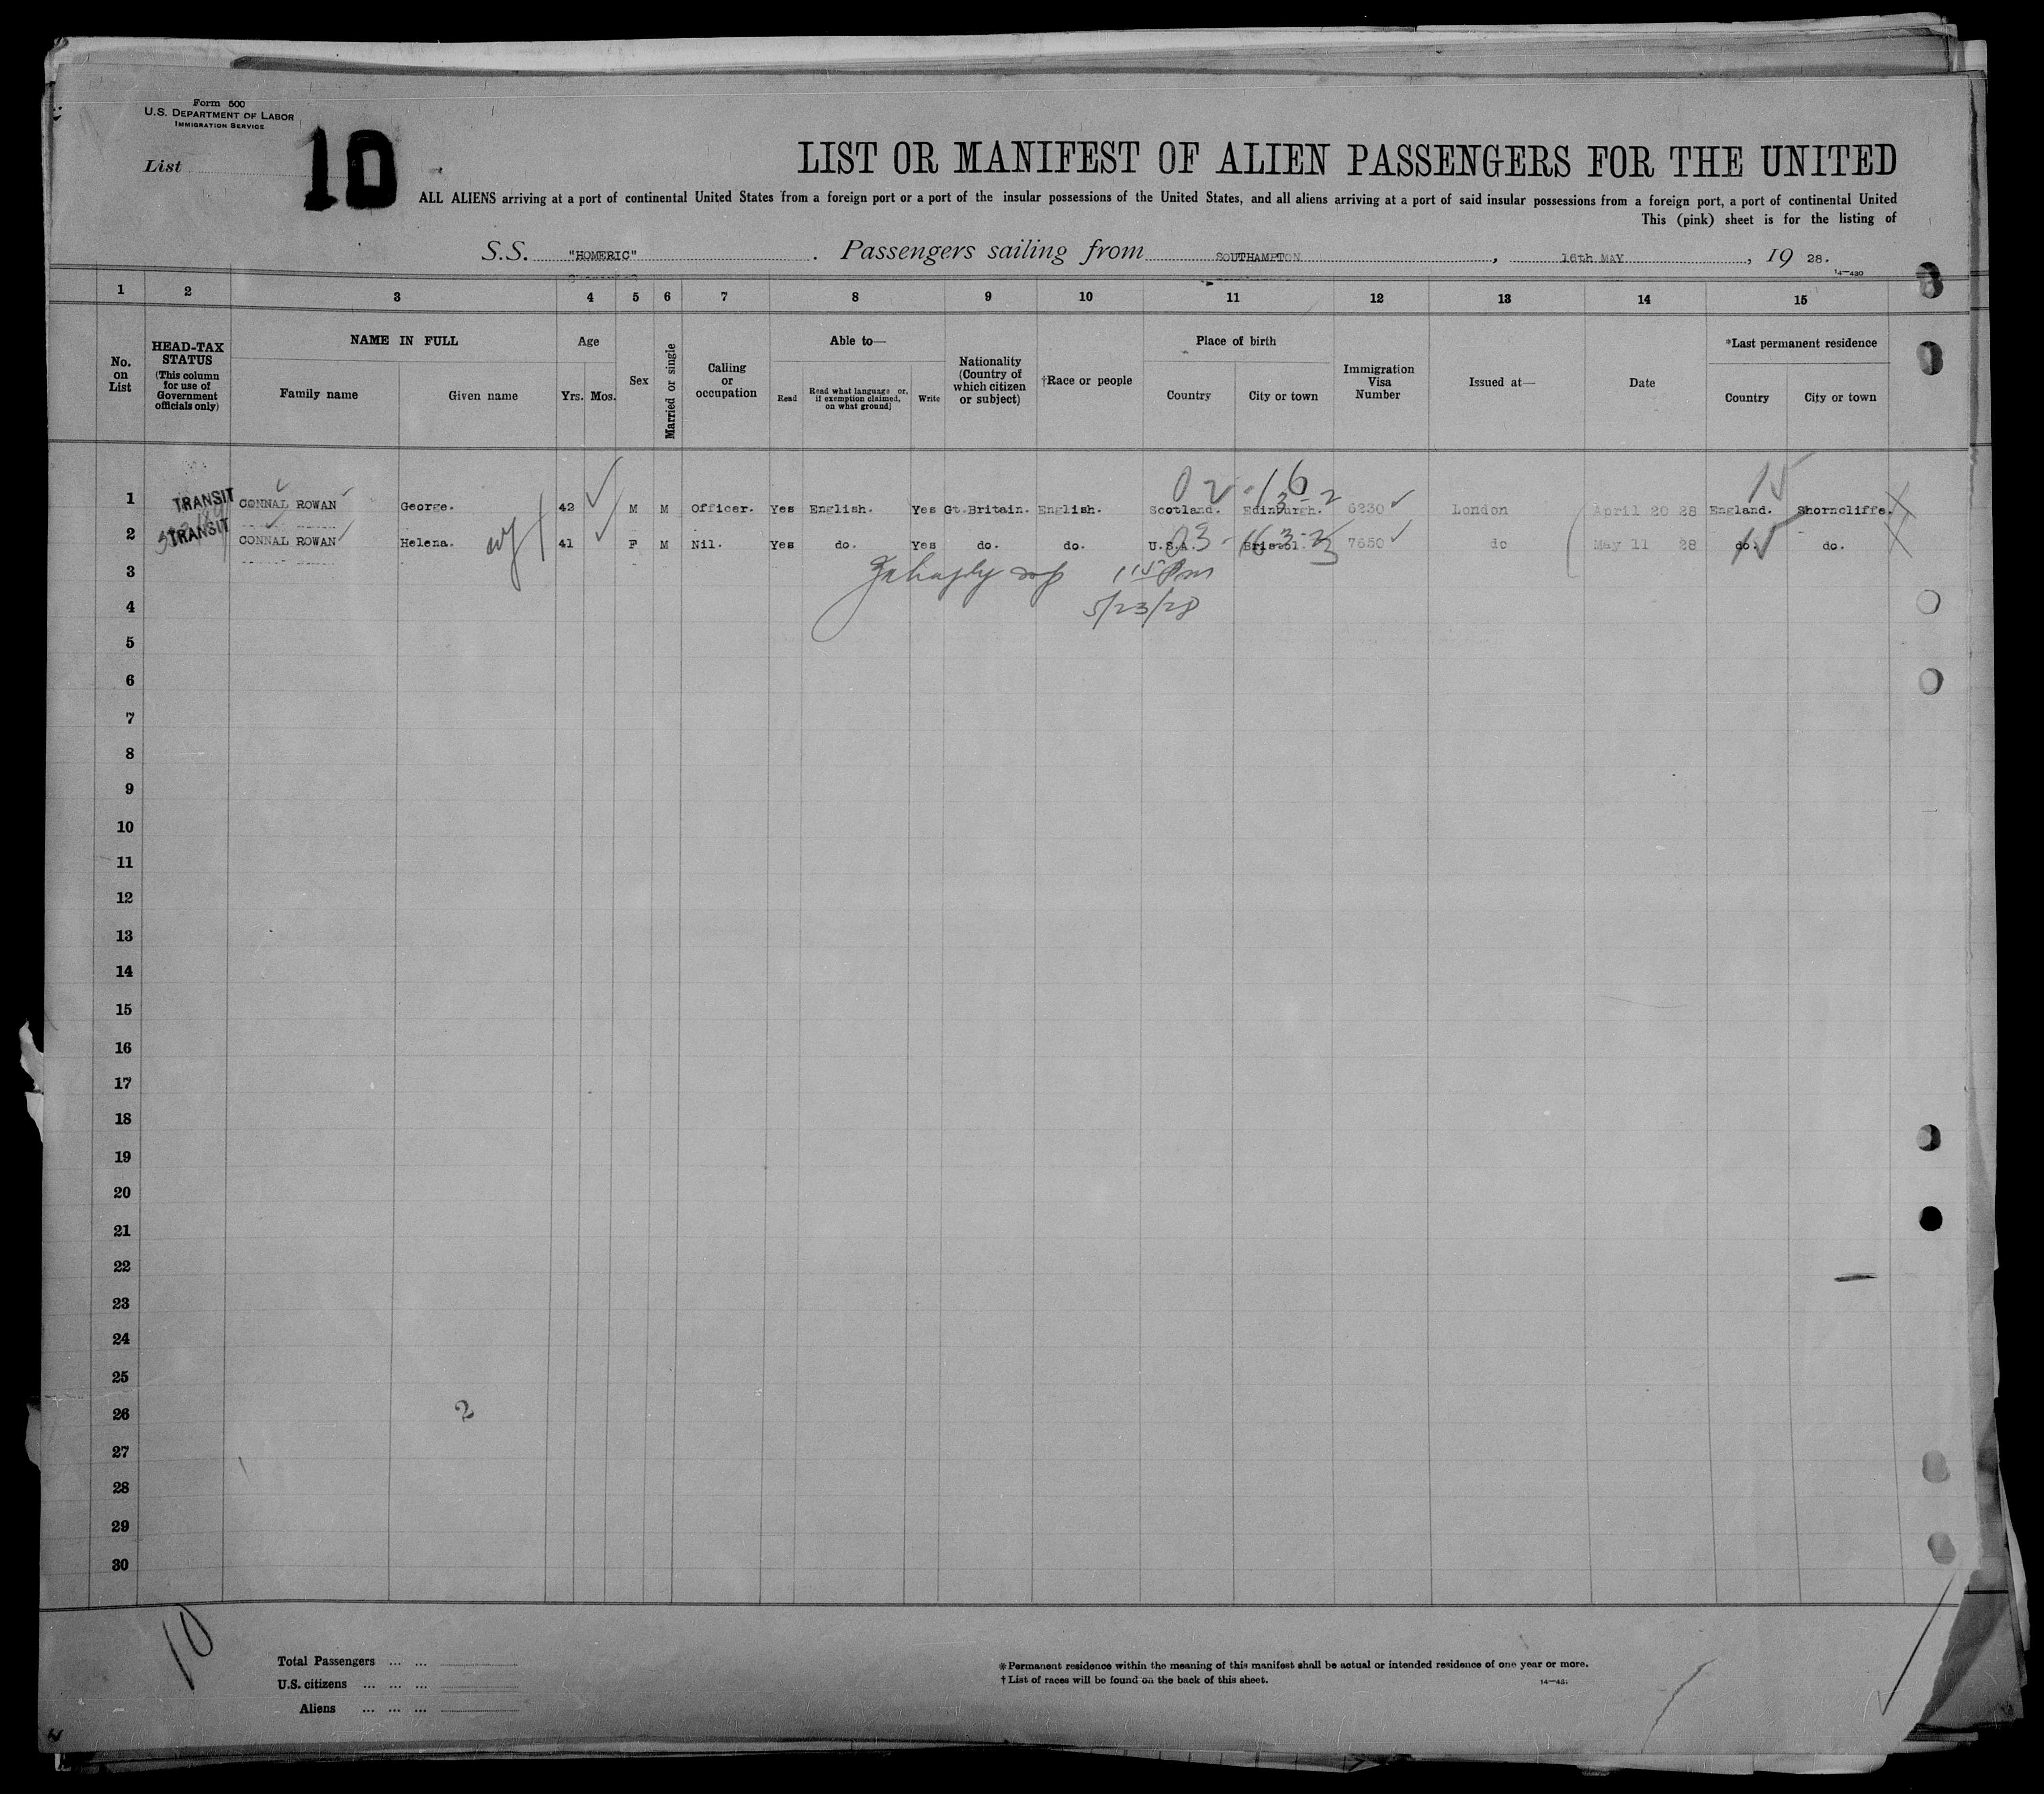 Form 500
U.S. DEPARTMENT OF LABOR
IMMIGRATION SERVICE
List
10
LIST OR MANIFEST OF ALIEN PASSENGERS FOR THE UNITED
ALL ALIENS arriving at a port of continental United States from a foreign port or a port of the insular possessions of the United States, and all aliens arriving at a port of said insular possessions from a foreign port, a port of continental United
This (pink) sheet is for the listing of
S.S. "HOMERIC". Passengers sailing from SOUTHAMPTON, 16th MAY, 19 28.
14—430
1 2 3 4 5 6 7 8 9 10 11 12 13 14 15
No. on List
HEAD-TAX STATUS
(This column for use of Government officials only)
NAME IN FULL
Family name Given name
Age
Yrs. Mos.
Sex
Married or single
Calling or occupation
Able to—
Read
Read what language or, if exemption claimed, on what ground]
Write
Nationality (Country of which citizen or subject)
†Race or people
Place of birth
Country City or town
Immigration Visa Number
Issued at—
Date
*Last permanent residence
Country City or town
02-16 3-2 15
1 TRANSIT CONNAL ROWAN George. 42 M M Officer. Yes English. Yes Gt.Britain. English. Scotland. Edinburgh. 6230 London April 20 28 England. Shorncliffe.
2 TRANSIT CONNAL ROWAN Helena. 41 F M Nil. Yes do. Yes do. do. U.S.A. Bristol. 7650 do May 11 28 do. do.
03 15
3
4 5/23/28
5
6
7
8
9
10
11
12
13
14
15
16
17
18
19
20
21
22
23
24
25
26 2
27
28
29
30
10
Total Passengers ... ...
U.S. citizens ... ... ...
Aliens ... ... ...
*Permanent residence within the meaning of this manifest shall be actual or intended residence of one year or more.
†List of races will be found on the back of this sheet.